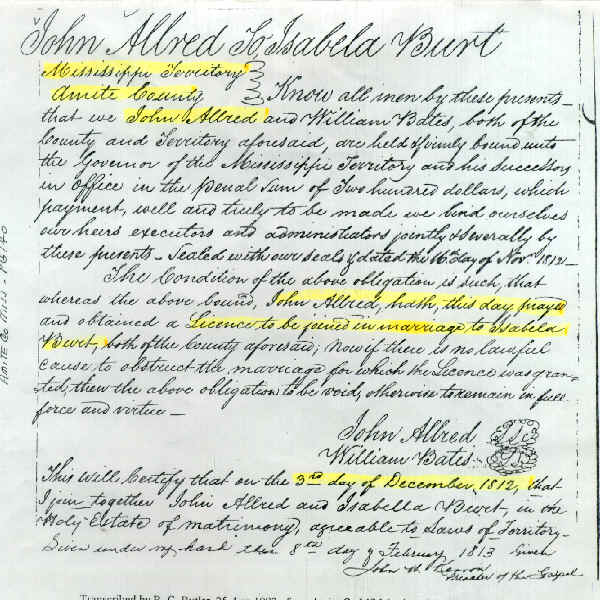 John Allred To Isabela Burt
Mississippi Territory
Amite County Know all men by these presents
that we John Allred and William Bates, both of the
County and Territory aforesaid, are held & firmly bound unto
the Governor of the Mississippi Territory and his successors
in office in the penal sum of Two hundred dollars, which
payment, well and truly to be made we bind ourselves
our heirs executors and administrators jointly & severally by
these presents - Sealed with our seals & dated the 16th day of Novr 1812 -
The Condition of the above obligation is such, that
whereas the above bound, John Allred, hath, this day prayed
and obtained a Licence to be joined in marriage to Isabela
Burt, both of the County aforesaid; Now if there is no lawful
cause to obstruct the marriage for which the Licence was gran-
ted, then the above obligation to be void, otherwise to remain in full
force and virtue -
John Allred
William Bates
This Will Certify that on the 3rd day of December, 1812, that
I join together John Allred and Isabella Burt, in the
Holy Estate of matrimony, agreeable to Laws of Territory -
Given under my hand this 8th day of February 1813 Given
John W.
Preacher of the Gospel
Transcribed by B. C.